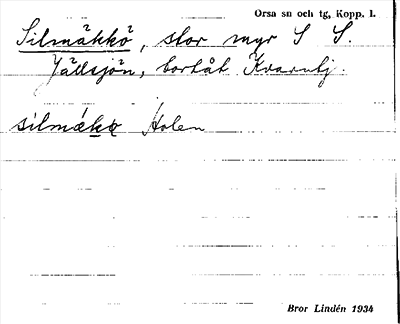 Orsa sn och tg, Kopp. l.
Silmäkkö, stor myr S S.
Jällsjön, bortåt Kvarnbj.
silmäkö Holen
Bror Lindén 1934